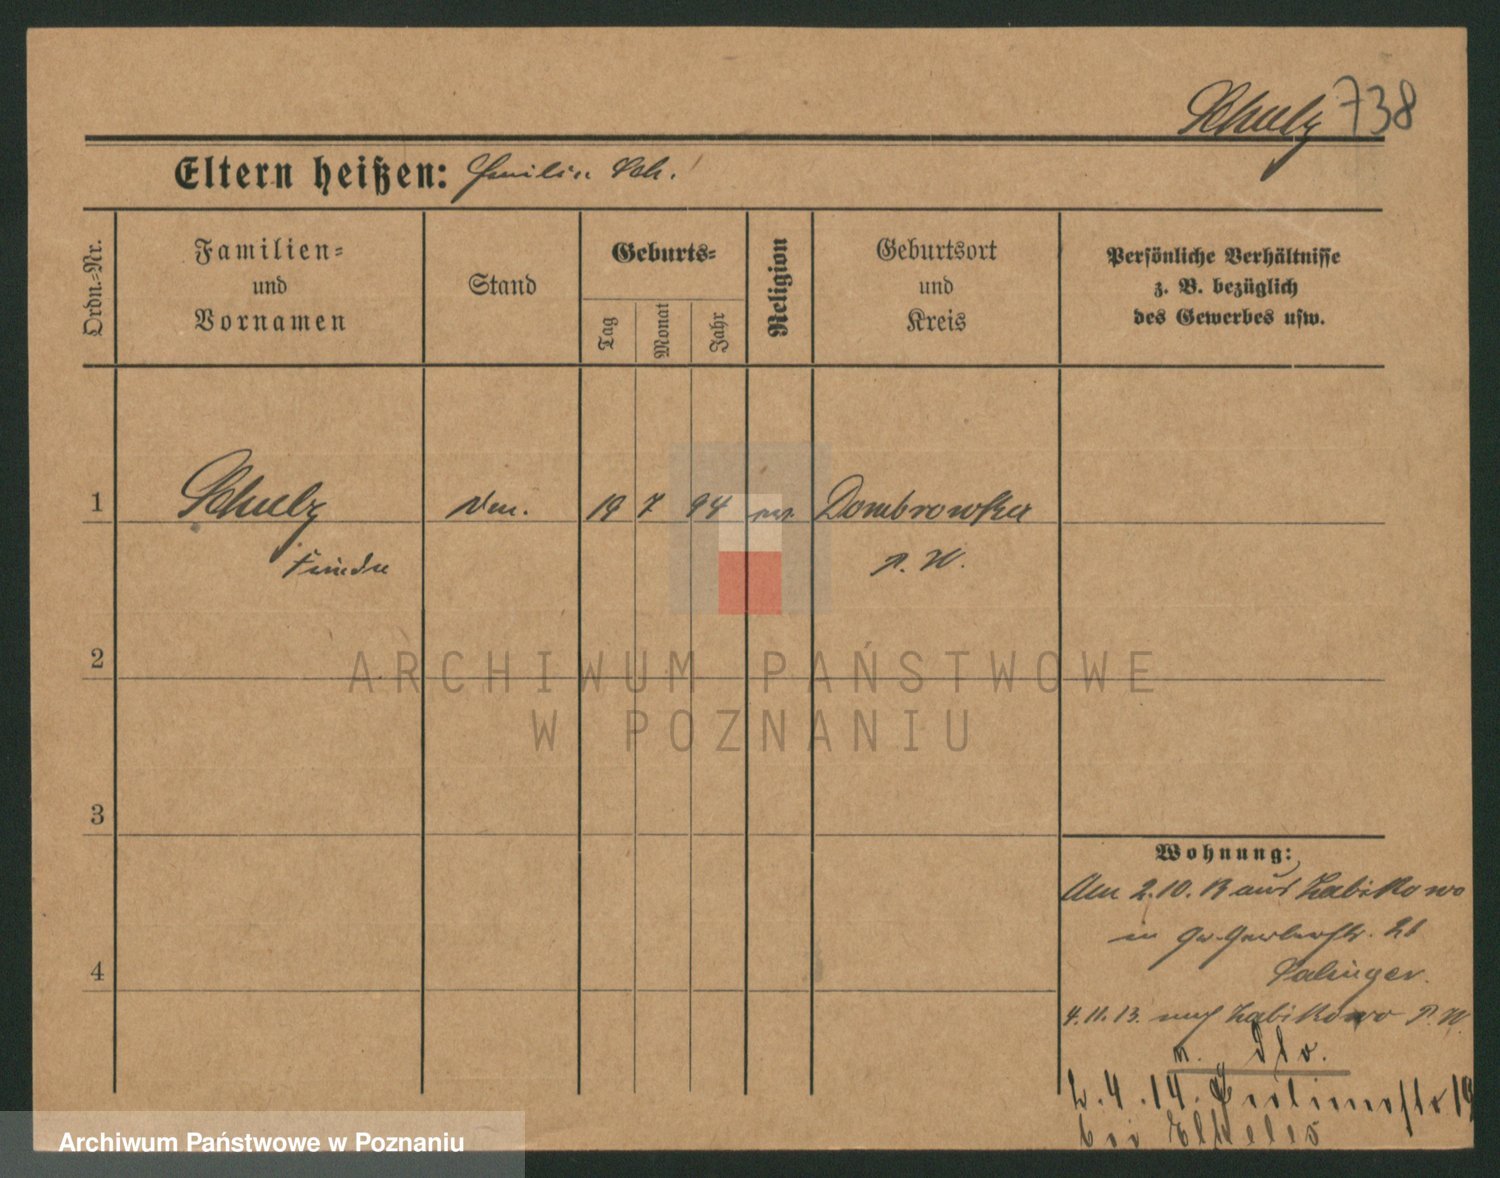 Schulz 738
Eltern heißen: Emilie Sch.
Ordn.=Nr.
Familien=
und
Vornamen
Stand
Geburts=
Tag
Monat
Jahr
Religion
Geburtsort
und
Kreis
Persönliche Verhältnisse
z. B. bezüglich
des Gewerbes usw.
1 Schulz 19 7 94 Dombrowka
P. W.
2
3
4
Wohnung:
Am 2.10.13 aus Zabikowo
in Gr. Gerberstr.
Salinger.
4.11.13. nach Zabikowo P. W.
2.4.14.
bei
ARCHIWUM PAŃSTWOWE
W POZNANIU
Archiwum Państwowe w Poznaniu